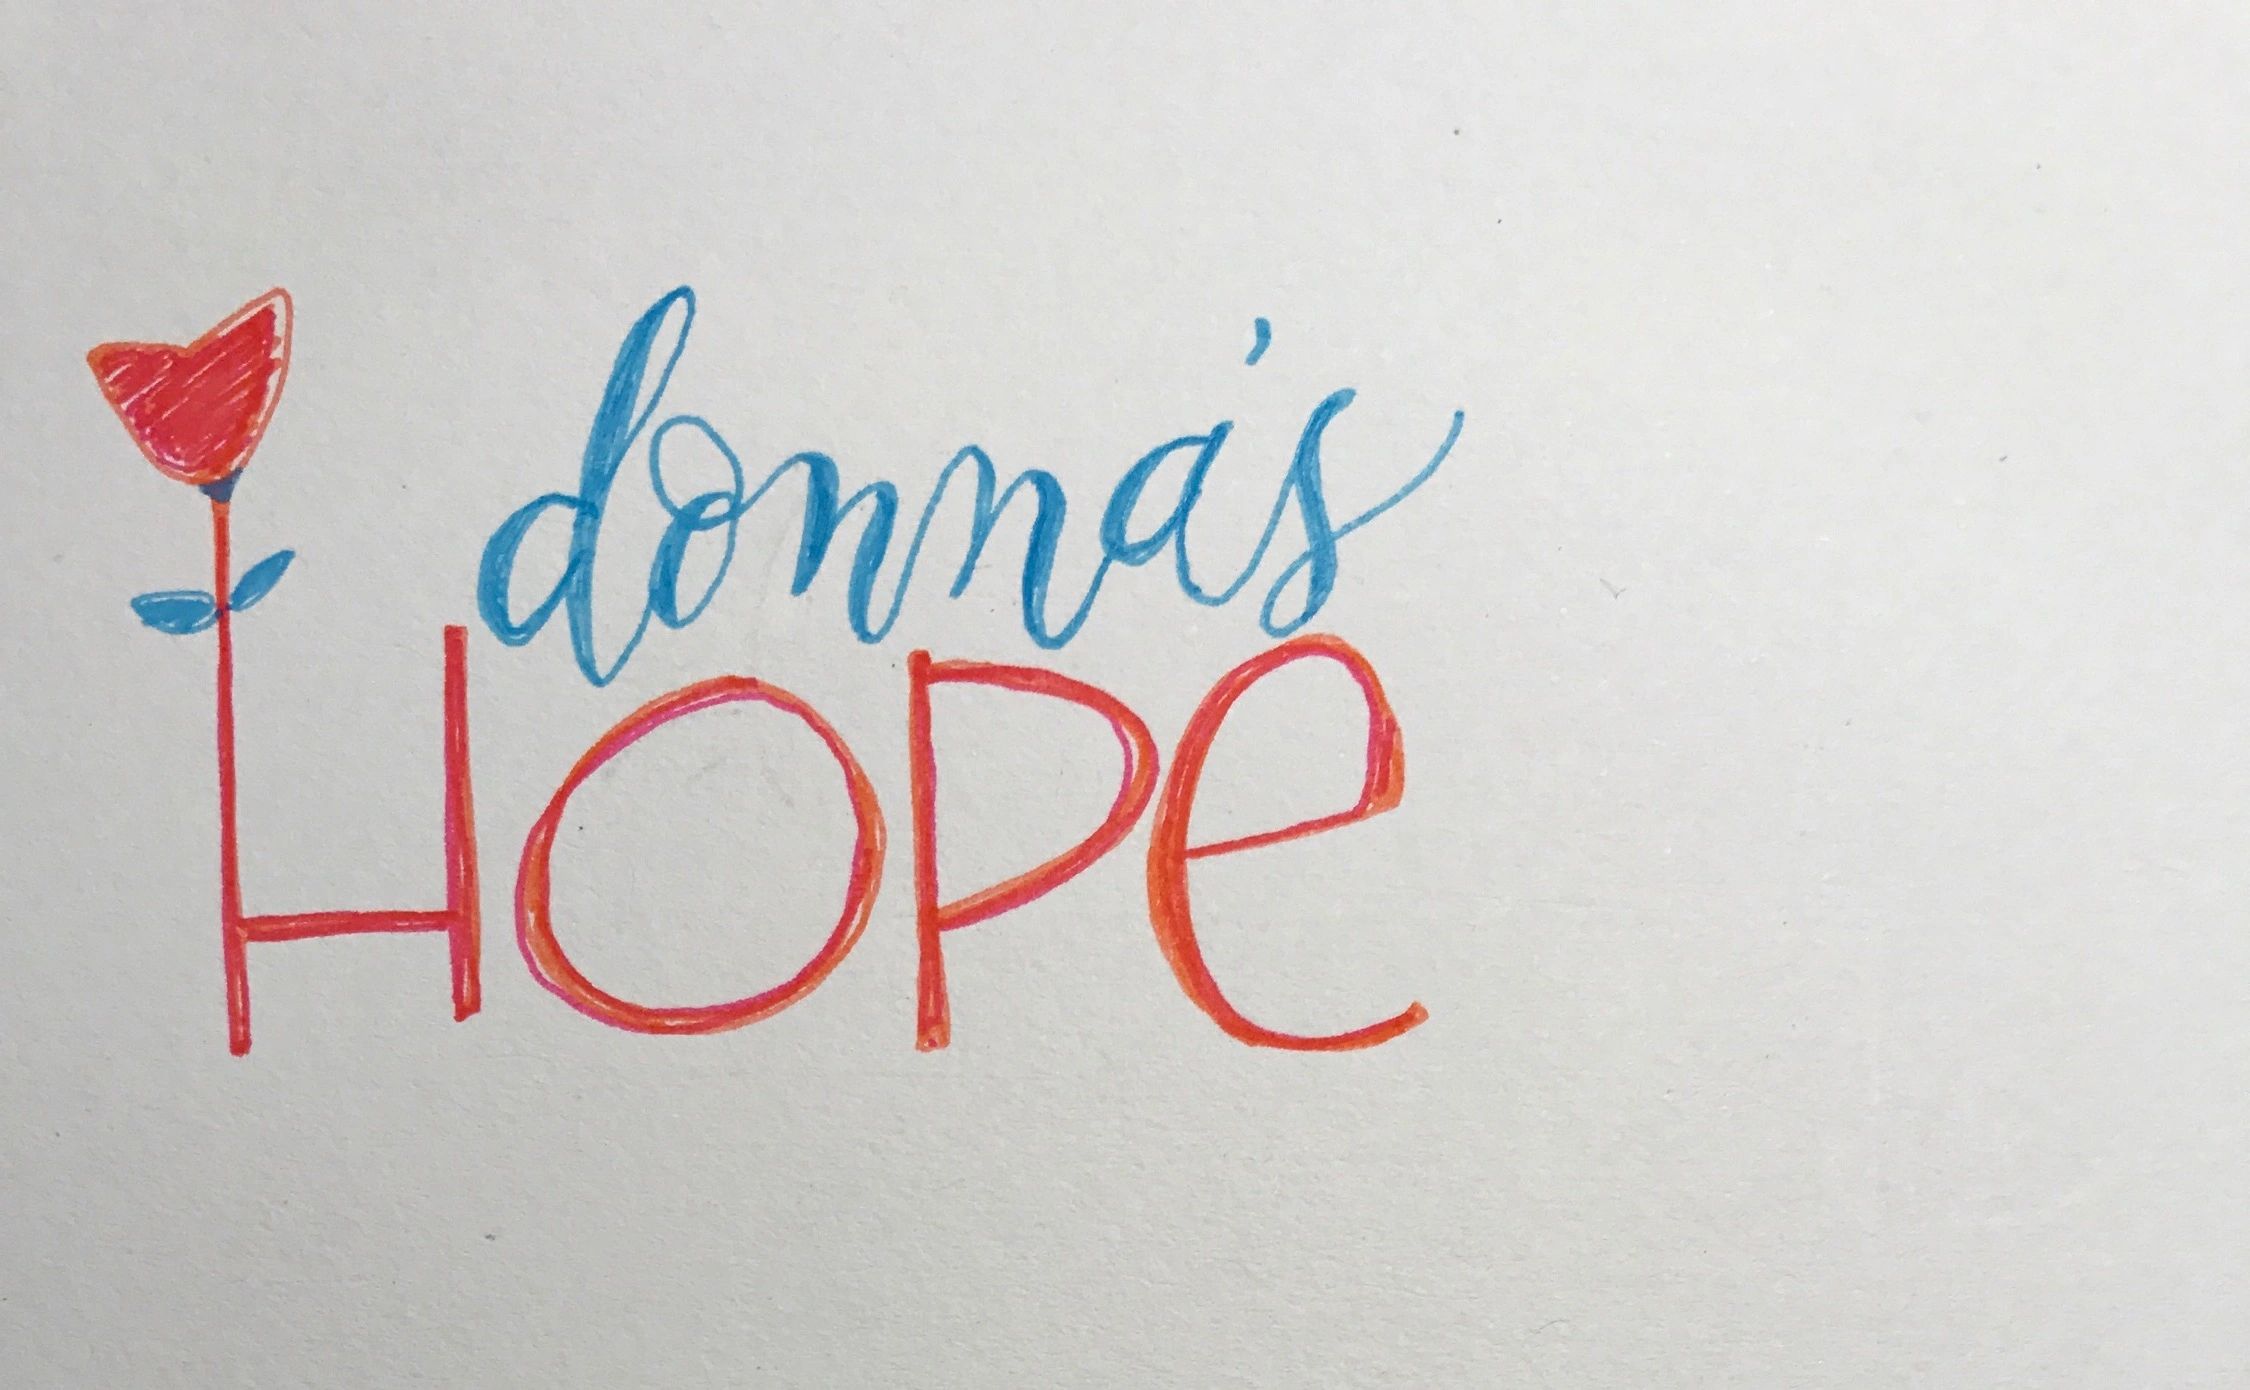 donna's
HOPe